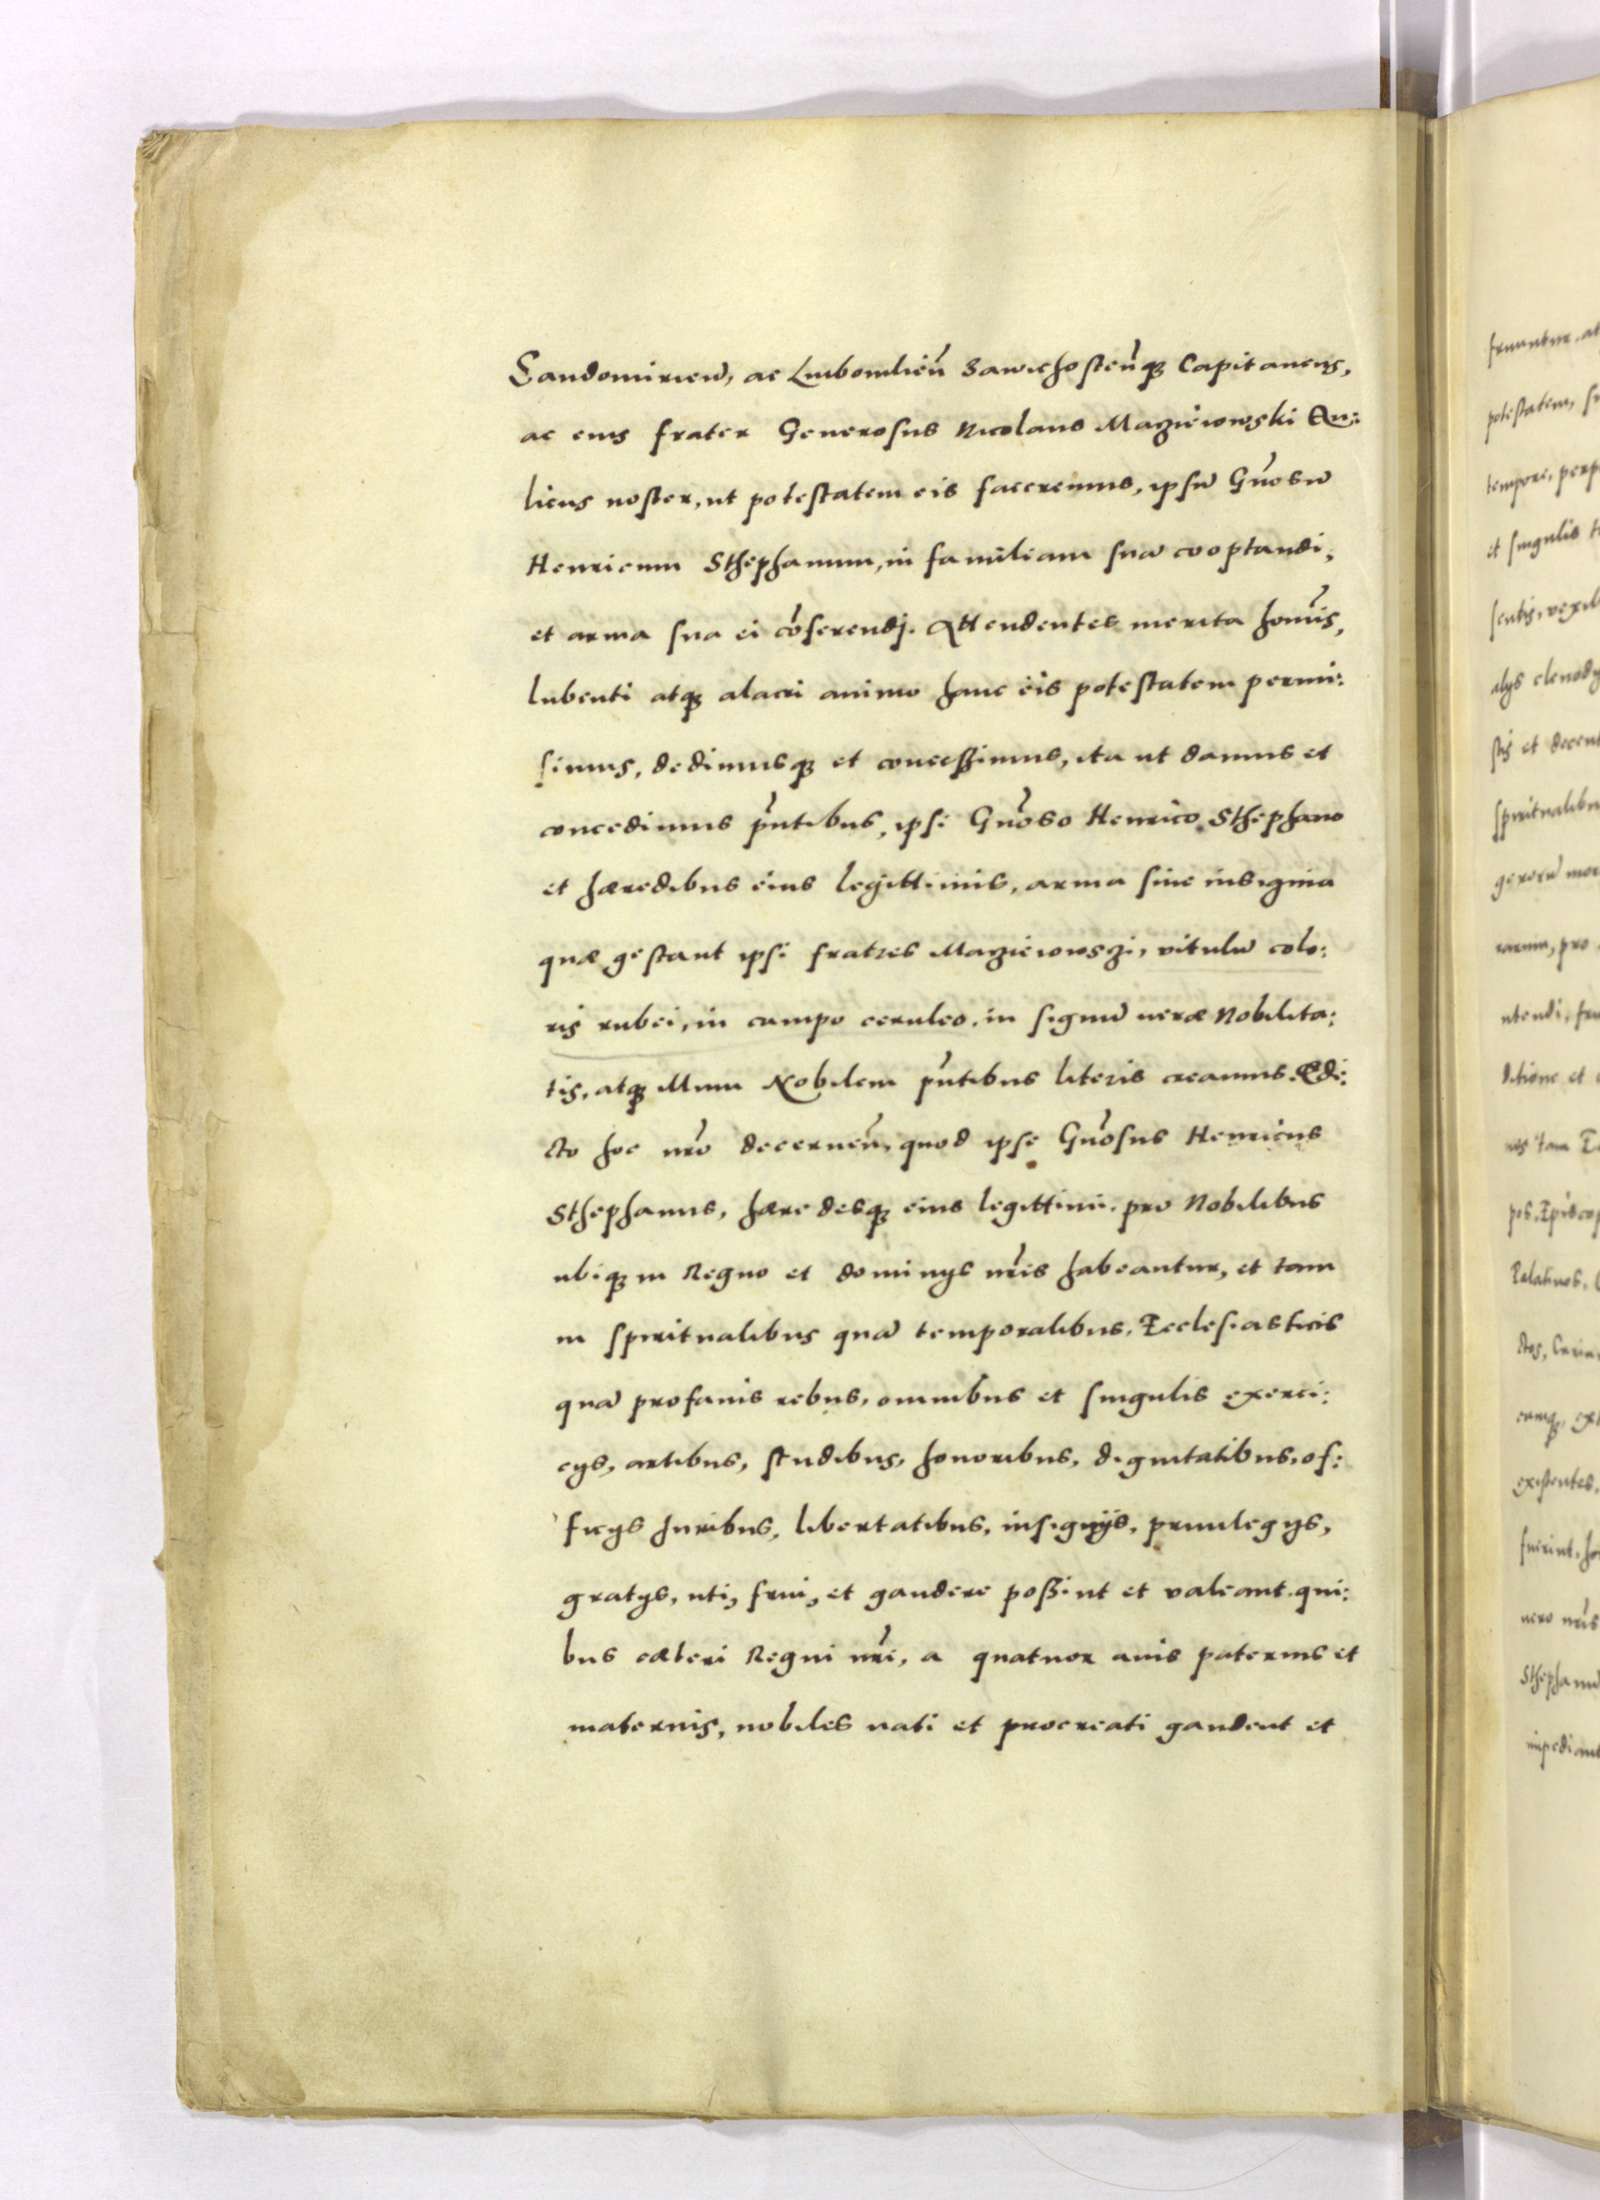 Sandomirien̄, ac Lubomlien̄ Zawichosten̄q₃ Capitaneus,
ac eius frater Generosus Nicolaus Maziéiowski Au:
licus noster, ut potestatem eis faceremus, ipsū Gn̄osū
Henricum Sthephanum, in familiam suā cooptandi,
et arma sua ei cōferendj. Attendentes merita homīs,
lubenti atq₃ alacri animo hanc eis potestatem permi:
simus, dedimusq₃ et concessimus, ita ut damus et
concedimus pn̄tibus, ipsi Gn̄oso Henrico Sthephano
et hæredibus eius legittimis, arma siue insignia
quæ gestant ipsi fratres Maziéiowszi, vitulū colo:
ris rubei, in campo ceruleo, in signū ueræ Nobilita:
tis, atq₃ illum Nobilem pn̄tibus literis creamus. Edi:
cto hoc nr̄o decernen̄, quod ipse Gn̄osus Henricus
Sthephanus, hæredesq₃ eius legittimi, pro Nobilibus
ubiq₃ in Regno et dominijs nr̄is habeantur, et tam
in spiritualibus quā temporalibus, Ecclesiasticis
quā profanis rebus, omnibus et singulis exerci:
cijs, artibus, studibus, honoribus, dignitatibus, of:
ficijs Juribus, libertatibus, insignijs, priuilegijs,
gratijs, uti, frui, et gaudere possint et valeant. qui:
bus cæteri Regni nr̄i, a quatuor auis paternis et
maternis, nobiles nati et procreati gaudent et
fruuntur. at
potestatem, su
tempore, perp
et singulis t
sentis, vexil
alijs clenodi
stis et decent
spiritualibu
gererū mor
rarum, pro
utendi, fru
ditione et
nes tam
pos, Episcop
Palatinos,
ctos,
eumq₃, ex
existentes,
fuerint, ho
uero nr̄is
Sthephanū
impediant